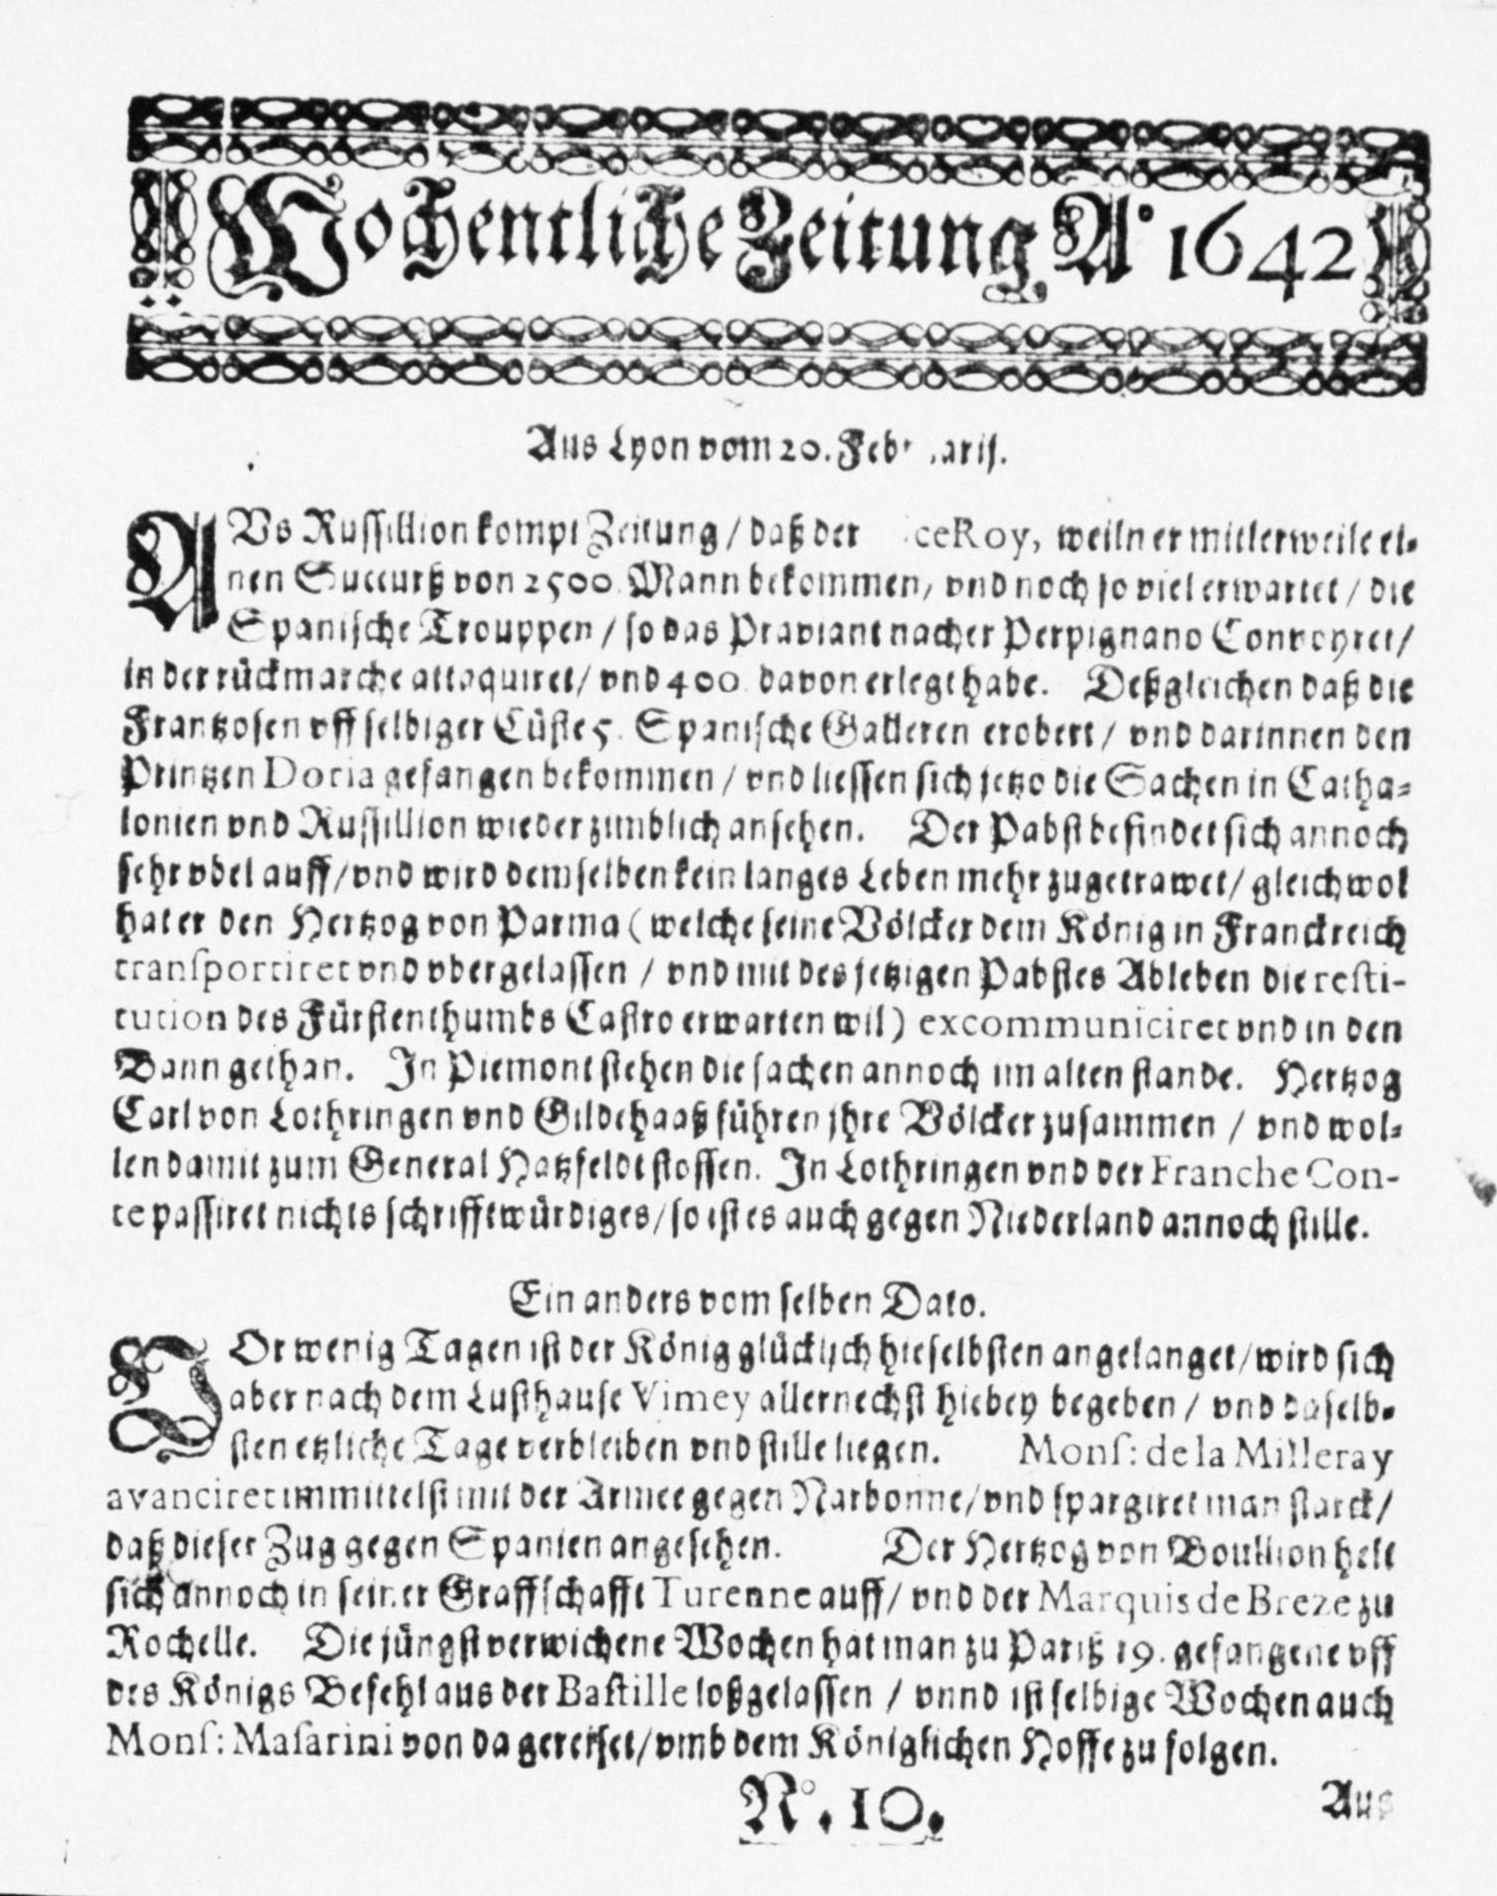 Wochentliche Zeitung A° 1642
Aus Lyon vom 20. Feb arij.
AVs Russillion kompt Zeitung / daß der ceRoy, weiln er mitlerweile ei-
nen Succurß von 2500. Mann bekommen / vnd noch so viel erwartet / die
Spanische Trouppen / so das Praviant nacher Perpignano Convoyret /
in der rückmarche attaquiret / vnd 400. davon erlegt habe. Deßgleichen daß die
Frantzosen vff selbiger Cüste 5. Spanische Galleren erobert / vnd darinnen den
Printzen Doria gefangen bekommen / vnd liessen sich jetzo die Sachen in Catha-
lonien vnd Russillion wieder zimblich ansehen. Der Pabst befindet sich annoch
sehr vbel auff / vnd wird demselben kein langes Leben mehr zugetrawet / gleichwol
hat er den Hertzog von Parma ( welche seine Völcker dem König in Franckreich
transportiret vnd vbergelassen / vnd mit des jetzigen Pabstes Ableben die resti-
tution des Fürstenthumbs Castro erwarten wil ) excommuniciret vnd in den
Bann gethan. In Piemont stehen die sachen annoch im alten stande. Hertzog
Carl von Lothringen vnd Gildehaaß führen jhre Völcker zusammen / vnd wol-
len damit zum General Hatzfeldt stossen. In Lothringen vnd der Franche Con-
te passiret nichts schrifftwürdiges / so ist es auch gegen Niederland annoch stille.
Ein anders vom selben Dato.
VOr wenig Tagen ist der König glücklich hieselbsten angelanget / wird sich
aber nach dem Lusthause Vimey allernechst hiebey begeben / vnd daselb-
sten etzliche Tage verbleiben vnd stille liegen. Mons: de la Milleray
avanciret immittelst mit der Armee gegen Narbonne / vnd spargiret man starck /
daß dieser Zug gegen Spanien angesehen. Der Hertzog von Boullion helt
sich annoch in seiner Graffschafft Turenne auff / vnd der Marquis de Breze zu
Rochelle. Die jüngst verwichene Wochen hat man zu Pariß 19. gefangene vff
des Königs Befehl aus der Bastille loßgelassen / vnnd ist selbige Wochen auch
Mons: Masarini von da gereiset / vmb dem Königlichen Hoffe zu folgen.
N°. 10.
Aus